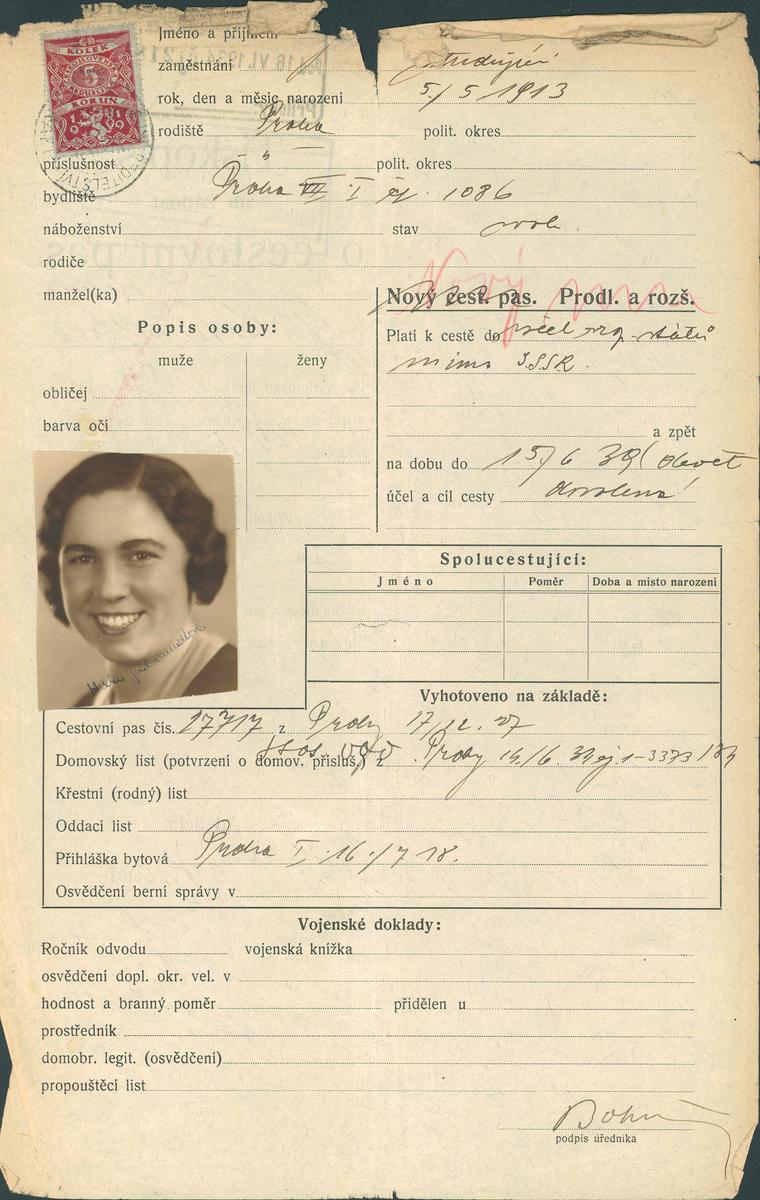 ČS
KOLEK
5
KORUN
1919
Jméno a příjmení
zaměstnání studující
rok, den a měsíc narození 5/5 1913
rodiště Praha polit. okres
příslušnost " polit. okres
bydliště Praha VII I čj. 1086
náboženství stav svob.
rodiče
manžel(ka)
Nový
Nový cest. pas. Prodl. a rozš.
Popis osoby:
muže ženy
obličej
barva očí
Platí k cestě do všech států
mimo SSSR.
a zpět
na dobu do 15/6 39 (devět
účel a cíl cesty dovolená
Spolucestující:
Jméno Poměr Doba a místo narození
Hana
Vyhotoveno na základě:
Cestovní pas čís. 17717 z Prahy 17/12. 27
Domovský list (potvrzení o domov. přísluš.) z Prahy 14/6. 34 čj. 1-3373/34
Křestní (rodný) list
Oddací list
Přihláška bytová Praha I. 16./7 18.
Osvědčení berní správy v
Vojenské doklady:
Ročník odvodu vojenská knížka
osvědčení dopl. okr. vel. v
hodnost a branný poměr přidělen u
prostředník
domobr. legit. (osvědčení)
propouštěcí list
podpis úředníka